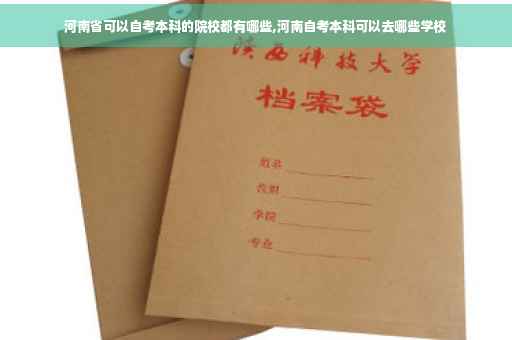 河南省可以自考本科的院校都有哪些,河南自考本科可以去哪些学校
陕西科技大学
档案袋
姓名
学院
专业